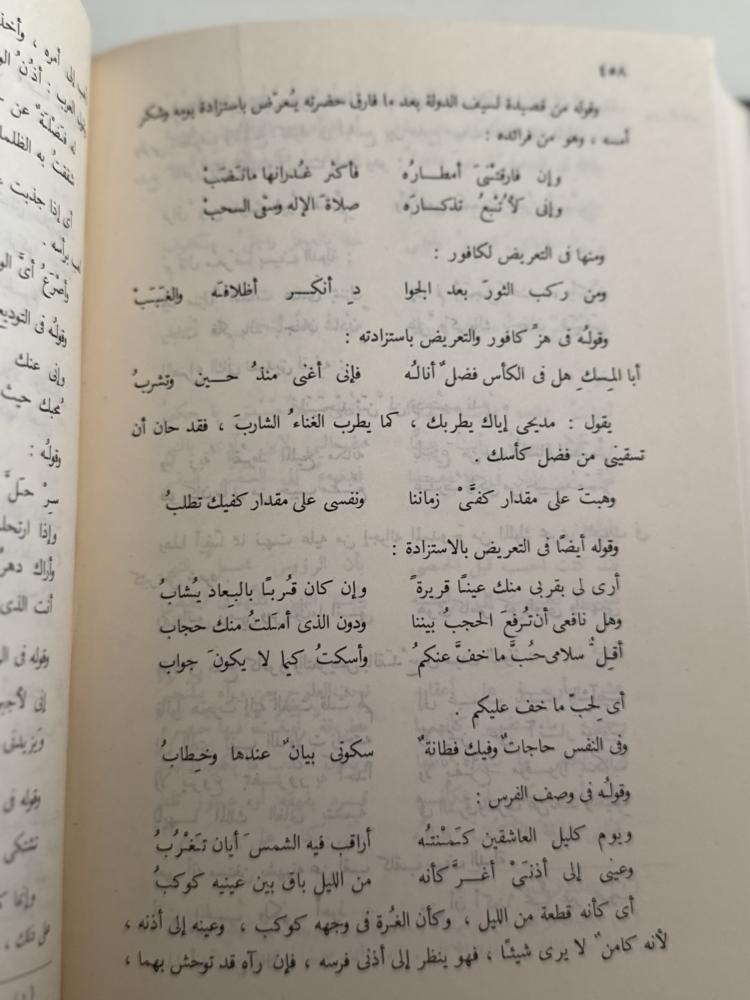 ٤٥٨
وقوله من قصيدة لسيف الدولة بعد ما فارق حضرته يُعرّض باستزادة يومه وشكر
أمسه ، وهو من فرائده :
وإن فارقتْنىَ أمطــارُه فأكثر غُدرانها مانَضَبْ
وإنى لأُتْبعُ تذكــارَه صلاةَ الإله وسقى السحبْ
ومنها فى التعريض لكافور :
ومن ركب الثورَ بعد الجوا دِ أنكَــر أظلافَه والغَبَبْ
وقولُه فى هزِّ كافور والتعريض باستزادته :
أبا المِسكِ هل فى الكأس فضلٌ أنالُه فإنى أغنى منذُ حــين وتشربُ
يقول : مديحى إياك يطربك ، كما يطرب الغناءُ الشاربَ ، فقد حان أن
تسقيَنى من فضل كأسك .
وهبتَ على مقدار كفَّىْ زماننا ونفسى على مقدار كفيك تطلبُ
وقوله أيضًا فى التعريض بالاستزادة :
أرى لى بقربى منك عينًا قريرةً وإن كان قُربًا بالبِعاد يُشابُ
وهل نافعى أن تُرفعَ الحجبُ بيننا ودون الذى أمّلتُ منك حجاب
أقِلُّ سلامى حُبَّ ما خفَّ عنكمُ وأسكتُ كيما لا يكونَ جواب
أى لِحبّ ما خف عليكم .
وفى النفس حاجاتٌ وفيك فطانةٌ سكوتى بيانٌ عندها وخِطابُ
وقولُه فى وصف الفرس :
ويوم كليل العاشقين كمَنْتُه أراقب فيه الشمسَ أيان تَغْرُبُ
وعينى إلى أذنَىْ أغــرَّ كأنه من الليل باق بين عينيه كوكبُ
أى كأنه قطعة من الليل ، وكأن الغُرة فى وجهه كوكب ، وعينه إلى أذنه ،
لأنه كامنٌ لا يرى شيئًا ، فهو ينظر إلى أذنى فرسه ، فإن رآه قد توحش بهما ،
أمره ، وأخذ
العرب : أذُنُ
عن
به الظلما
أى إذا جذبت
برأسه .
وأصْرَعُ أىَّ
وقولُه فى التوديع
وإنى عنك
حيث
وقولُه :
سِرْ حَلَّ
وإذا ارتحلـ
وأراك دهرُ
أنت الذى
وقوله فى
إنى لأجبـ
وَيزيدنى
وقوله فى
تشتكى
وإنما